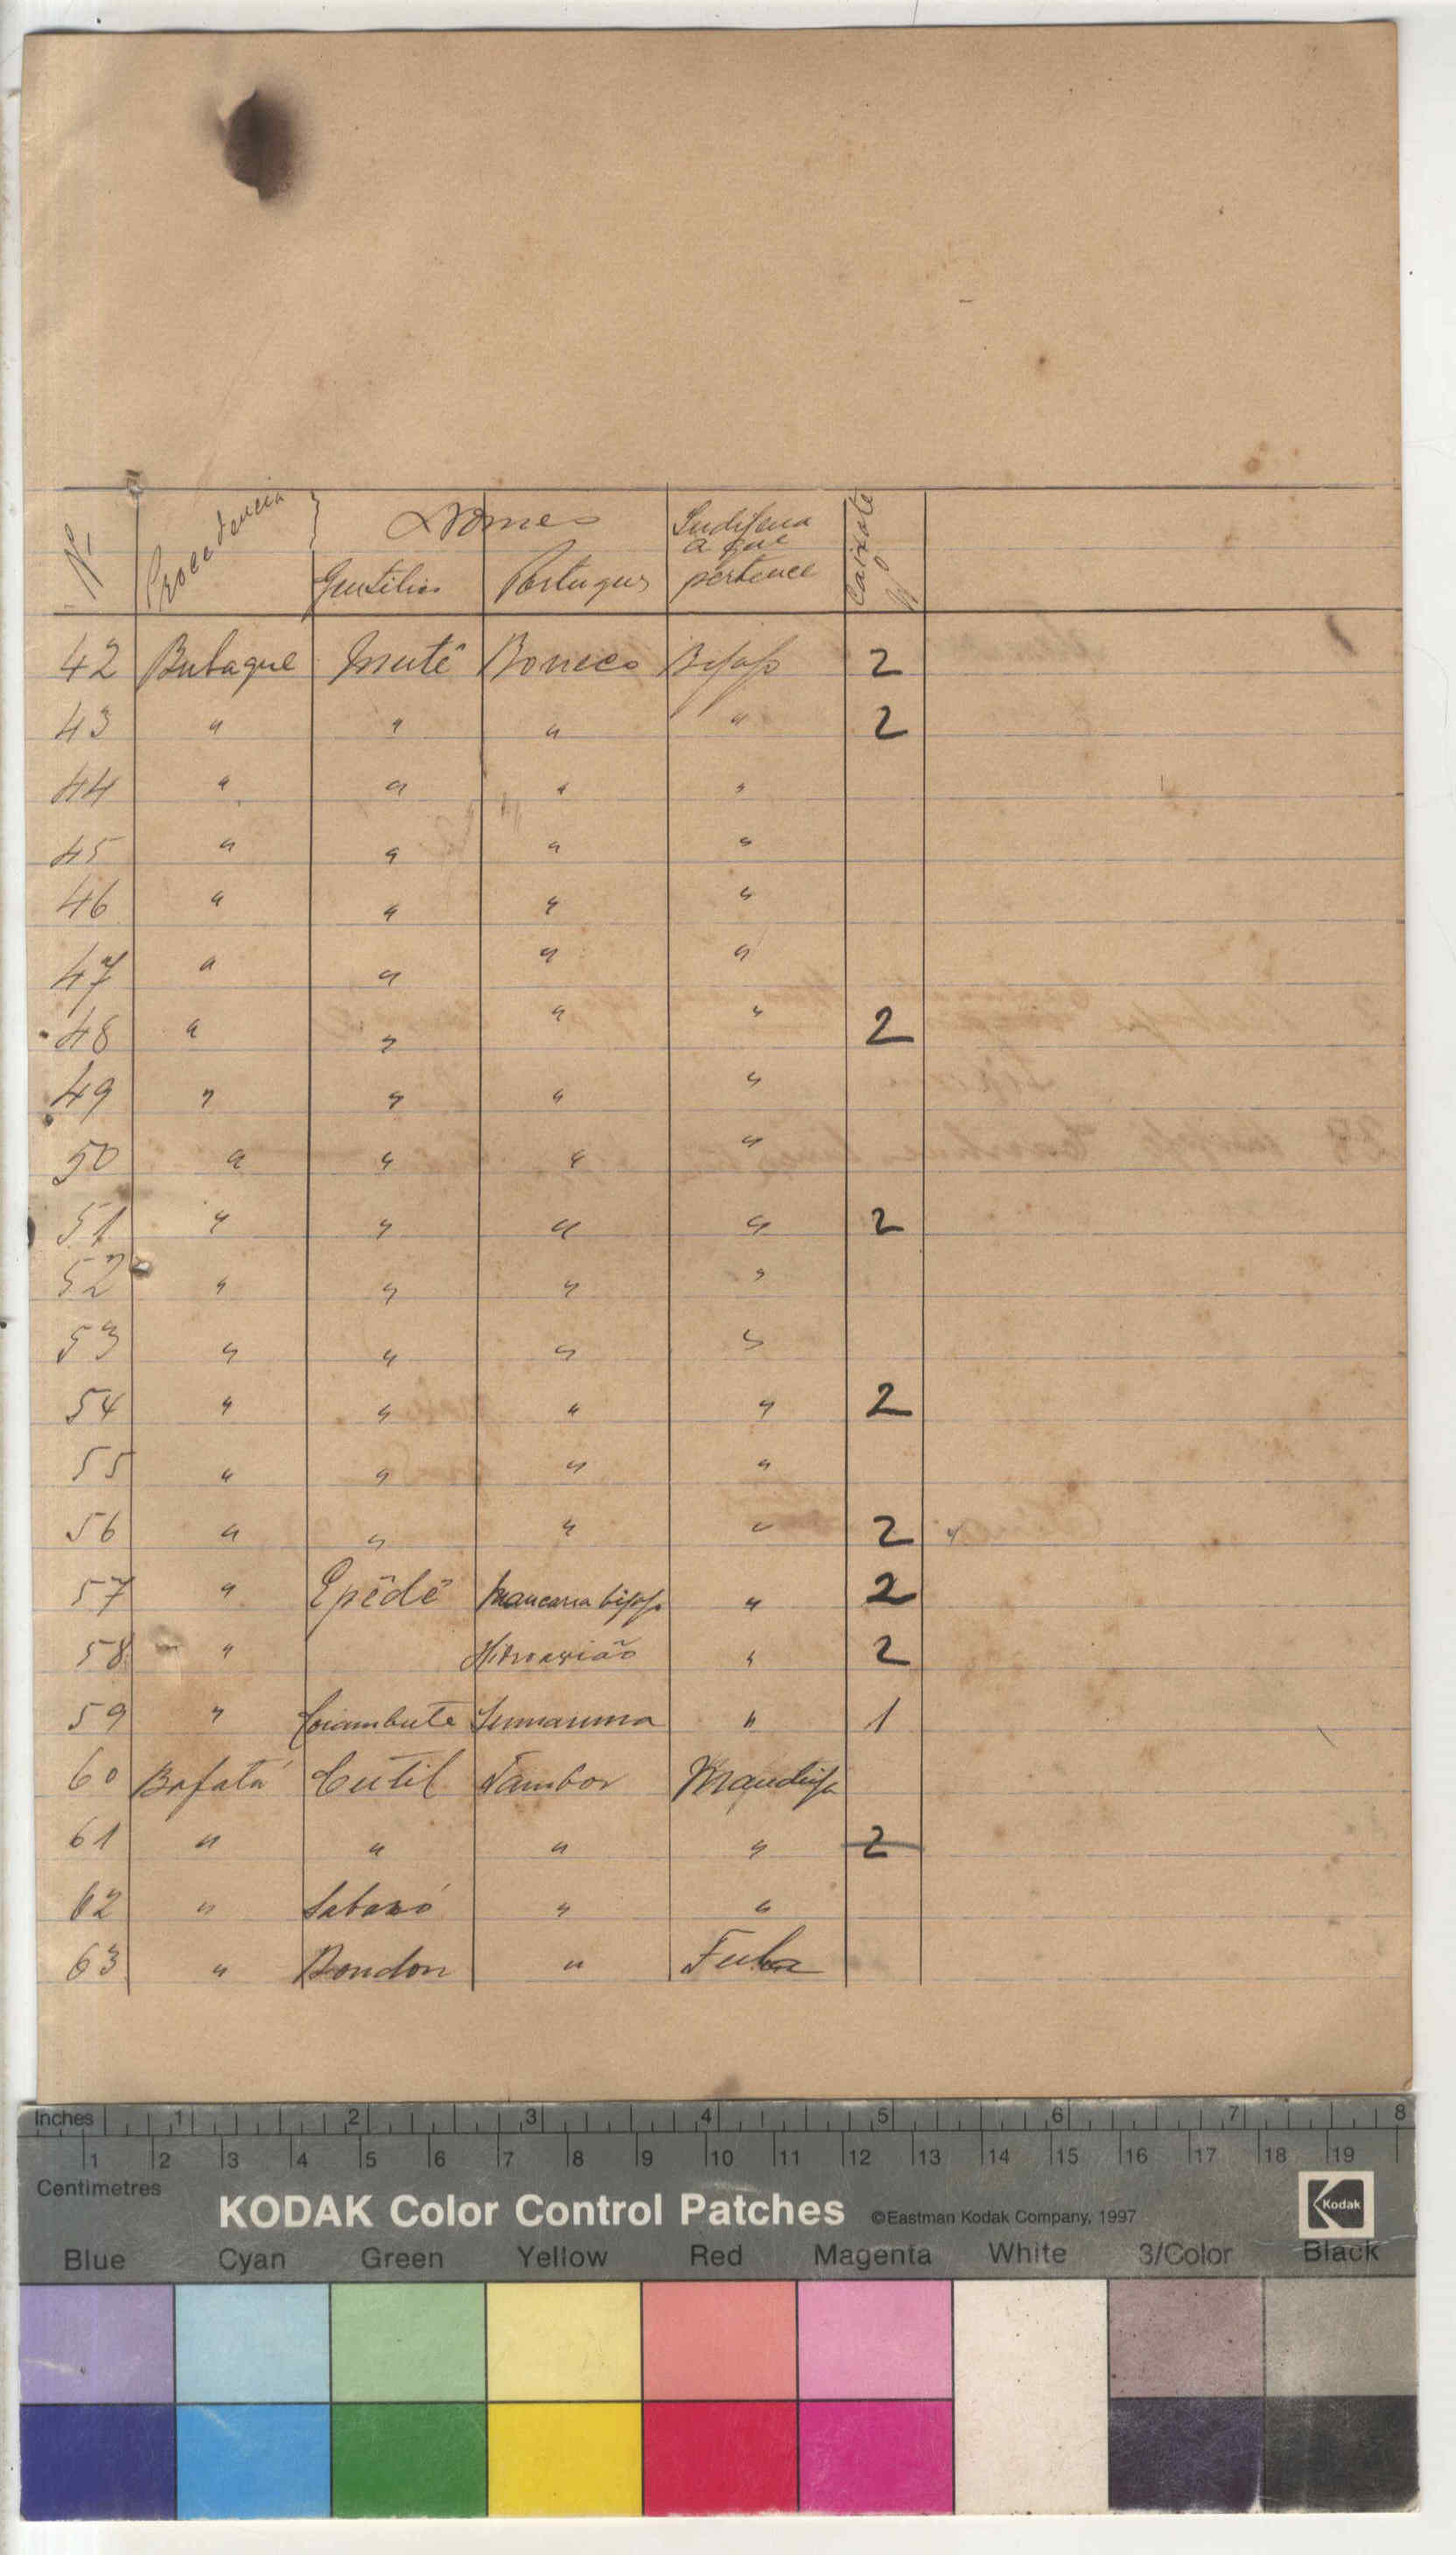 Nº Procedencia Nomes Indigena a que pertence Caixote Nº
Gentilico Portugues
42 Bubaque Muté Boneco Bijagó 2
43 " " " " 2
44 " " " "
45 " " " "
46 " " " "
47 " " " "
48 " " " " 2
49 " " " "
50 " " " "
51 " " " " 2
52 " " " "
53 " " " "
54 " " " " 2
55 " " " "
56 " " " " 2 "
57 " " Epêdê Mancarra bijagó " 2
58 " " 2
59 " Sumauma " 1
60 Bafatá Cutil Tambor Mandinga
61 " " " " 2
62 " " "
63 " Bondon " Fula
Inches 1 2 3 4 5 6 7 8
1 2 3 4 5 6 7 8 9 10 11 12 13 14 15 16 17 18 19
Centimetres
KODAK Color Control Patches ©Eastman Kodak Company, 1997 Kodak
Blue Cyan Green Yellow Red Magenta White 3/Color Black